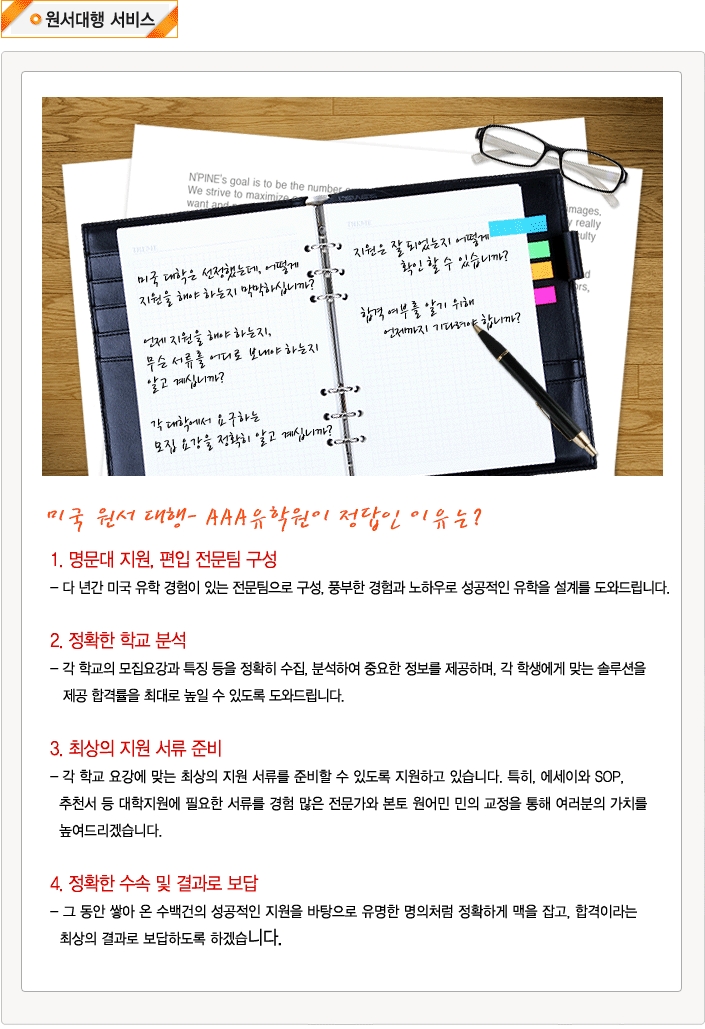 원서대행 서비스
N'PINE's goal is to be the number
We strive to maximize
want and
omages,
really
미국 대학은 선정했는데, 어떻게
지원을 해야 하는지 막막하십니까?
언제 지원을 해야 하는지,
무슨 서류를 어디로 보내야 하는지
알고 계십니까?
각 대학에서 요구하는
모집 요강을 정확히 알고 계십니까?
지원은 잘 되었는지 어떻게
확인 할 수 있습니까?
합격 여부를 알기 위해
언제까지 기다려야 합니까?
미국 원서 대행- AAA유학원이 정답인 이유는?
1. 명문대 지원, 편입 전문팀 구성
- 다 년간 미국 유학 경험이 있는 전문팀으로 구성, 풍부한 경험과 노하우로 성공적인 유학을 설계를 도와드립니다.
2. 정확한 학교 분석
- 각 학교의 모집요강과 특징 등을 정확히 수집, 분석하여 중요한 정보를 제공하며, 각 학생에게 맞는 솔루션을
제공 합격률을 최대로 높일 수 있도록 도와드립니다.
3. 최상의 지원 서류 준비
- 각 학교 요강에 맞는 최상의 지원 서류를 준비할 수 있도록 지원하고 있습니다. 특히, 에세이와 SOP,
추천서 등 대학지원에 필요한 서류를 경험 많은 전문가와 본토 원어민 민의 교정을 통해 여러분의 가치를
높여드리겠습니다.
4. 정확한 수속 및 결과로 보답
- 그 동안 쌓아 온 수백건의 성공적인 지원을 바탕으로 유명한 명의처럼 정확하게 맥을 잡고, 합격이라는
최상의 결과로 보답하도록 하겠습니다.